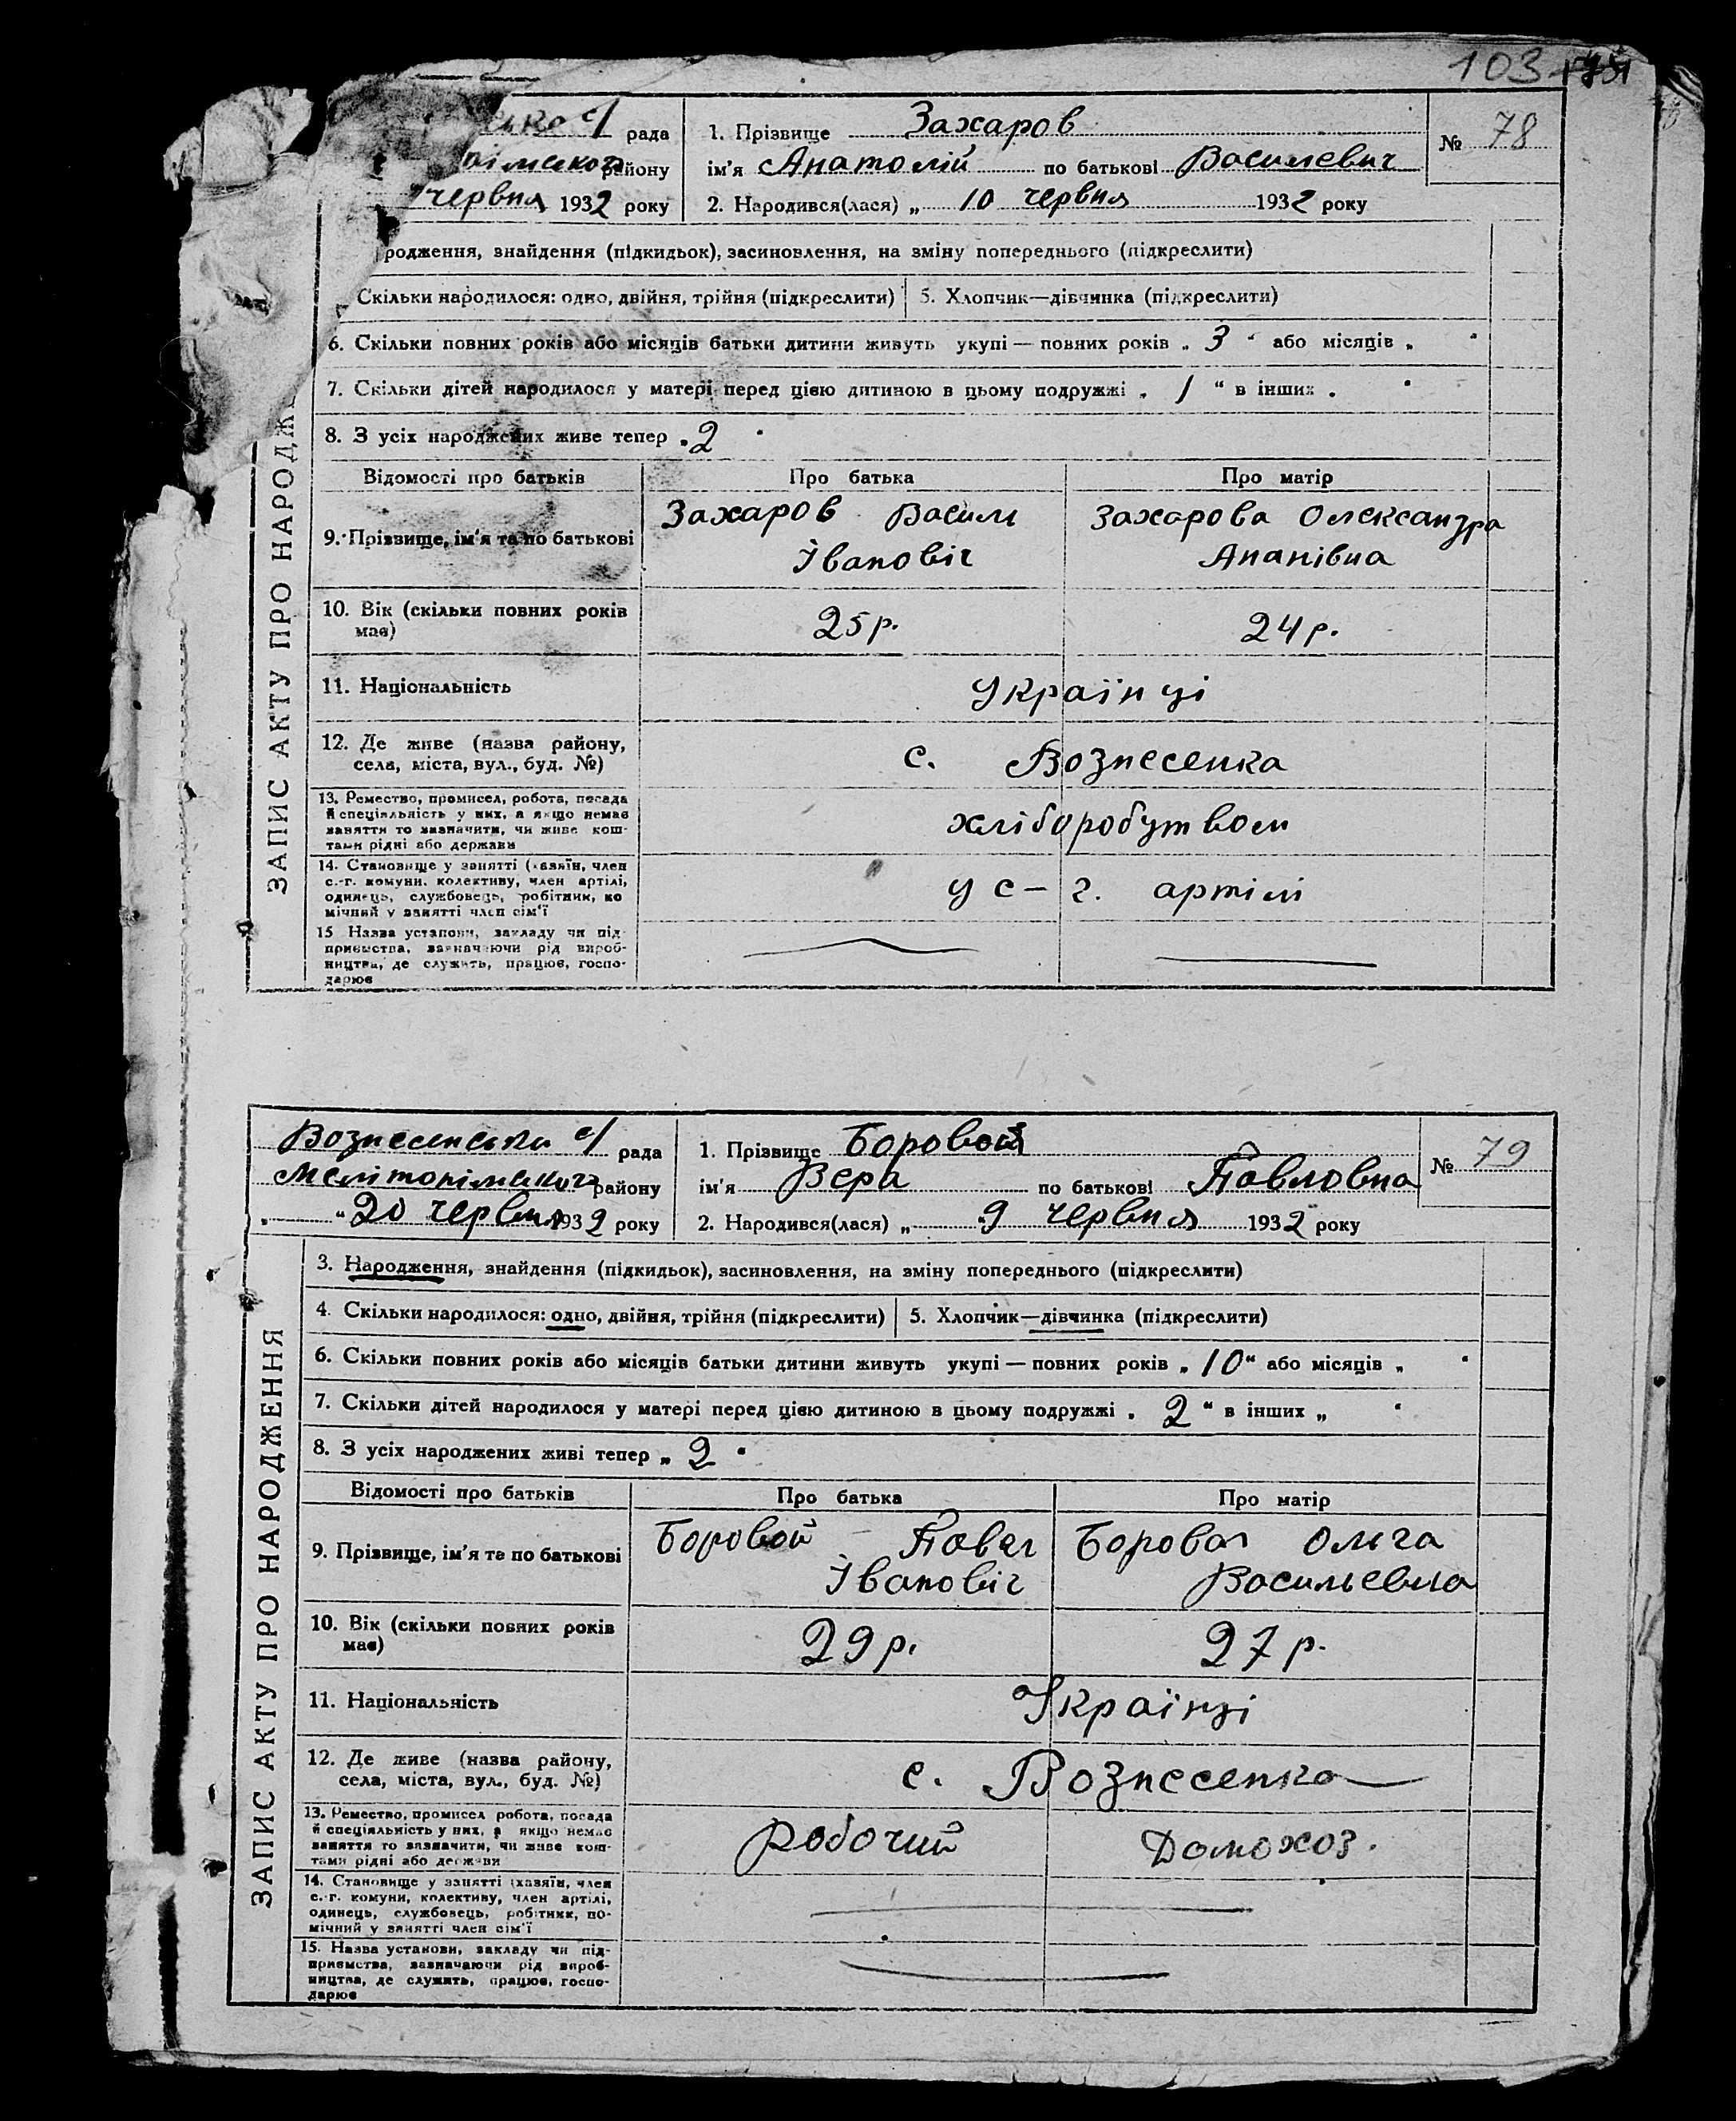 103
рада
району
червня 1932 року
1. Прізвище Захаров
ім'я Анатолій по батькові Василевич
№ 78
2. Народився(лася) „ 10 червня 1932 року
родження, знайдення (підкидьок), засиновлення, на зміну попереднього (підкреслити)
Скільки народилося: одно, двійня, трійня (підкреслити) 5. Хлопчик—дівчинка (підкреслити)
6. Скільки повних років або місяців батьки дитини живуть укупі — повних років „ 3 “ або місяців „ “
7. Скільки дітей народилося у матері перед цією дитиною в цьому подружжі „ 1 “ в інших „ “
8. З усіх народжених живе тепер „ 2 “
Відомості про батьків Про батька Про матір
9. Прізвище, ім'я та по батькові Захаров Василь Захарова Олександра
Івановіч Ананівна
10. Вік (скільки повних років 25 р. 24 р.
має)
11. Національність Українці
12. Де живе (назва району,
села, міста, вул., буд. №) с. Вознесенка
13. Ремество, промисел, робота, посада
й спеціяльність у них, а якщо немає
заняття то зазначити, чи живе кош-
тами рідні або держави
хліборобутвом
14. Становище у занятті (хазяїн, член
с.-г. комуни, колективу, член артілі,
одинець, службовець, робітник, по
мічний у занятті член сім'ї
у с-г. артілі
15 Назва установи, закладу чи під-
приємства, зазначаючи рід вироб-
ництва, де служить, працює, госпо-
дарює
ЗАПИС АКТУ ПРО НАРОДЖ
Вознесенська с/ рада
Мелітопільського району
„ “ 20 червня 1932 року
1. Прізвище Боровой
ім'я Вера по батькові Павловна
№ 79
2. Народився(лася) „ 9 червня 1932 року
3. Народження, знайдення (підкидьок), засиновлення, на зміну попереднього (підкреслити)
4. Скільки народилося: одно, двійня, трійня (підкреслити) 5. Хлопчик—дівчинка (підкреслити)
6. Скільки повних років або місяців батьки дитини живуть укупі — повних років „ 10 “ або місяців „ “
7. Скільки дітей народилося у матері перед цією дитиною в цьому подружжі „ 2 “ в інших „ “
8. З усіх народжених живі тепер „ 2 “
Відомості про батьків Про батька Про матір
9. Прізвище, ім'я та по батькові Боровой Павел Боровая Ольга
Івановіч Васильевна
10. Вік (скільки повних років 29 р. 27 р.
має)
11. Національність Українці
12. Де живе (назва району,
села, міста, вул., буд. №) с. Вознесенка
13. Ремество, промисел робота, посада
й спеціяльність у них, а якщо немає
заняття то зазначити, чи живе кош-
тами рідні або держави
Робочий Домохоз.
14. Становище у занятті (хазяїн, член
с.-г. комуни, колективу, член артілі,
одинець, службовець, робітник, по-
мічний у занятті член сім'ї
15. Назва установи, закладу чи під-
приємства, зазначаючи рід вироб-
ництва, де служить, працює, госпо-
дарює
ЗАПИС АКТУ ПРО НАРОДЖЕННЯ